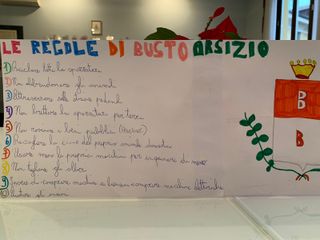 LE REGOLE DI BUSTO ARSIZIO
1) Riciclare tutta la spazzatura
2) Non abbandonare gli animali
3) Attraversare sulle strisce pedonali
4) Non buttare la spazzatura per terra
5) Non rovinare i beni pubblici
6) Raccogliere la cacca del proprio animale domestico
7) Usare meno la propria macchina per inquinare di meno
8) Non tagliare gli alberi
9) Invece di comprare macchine a benzina comprare macchine elettriche
10)
B
B